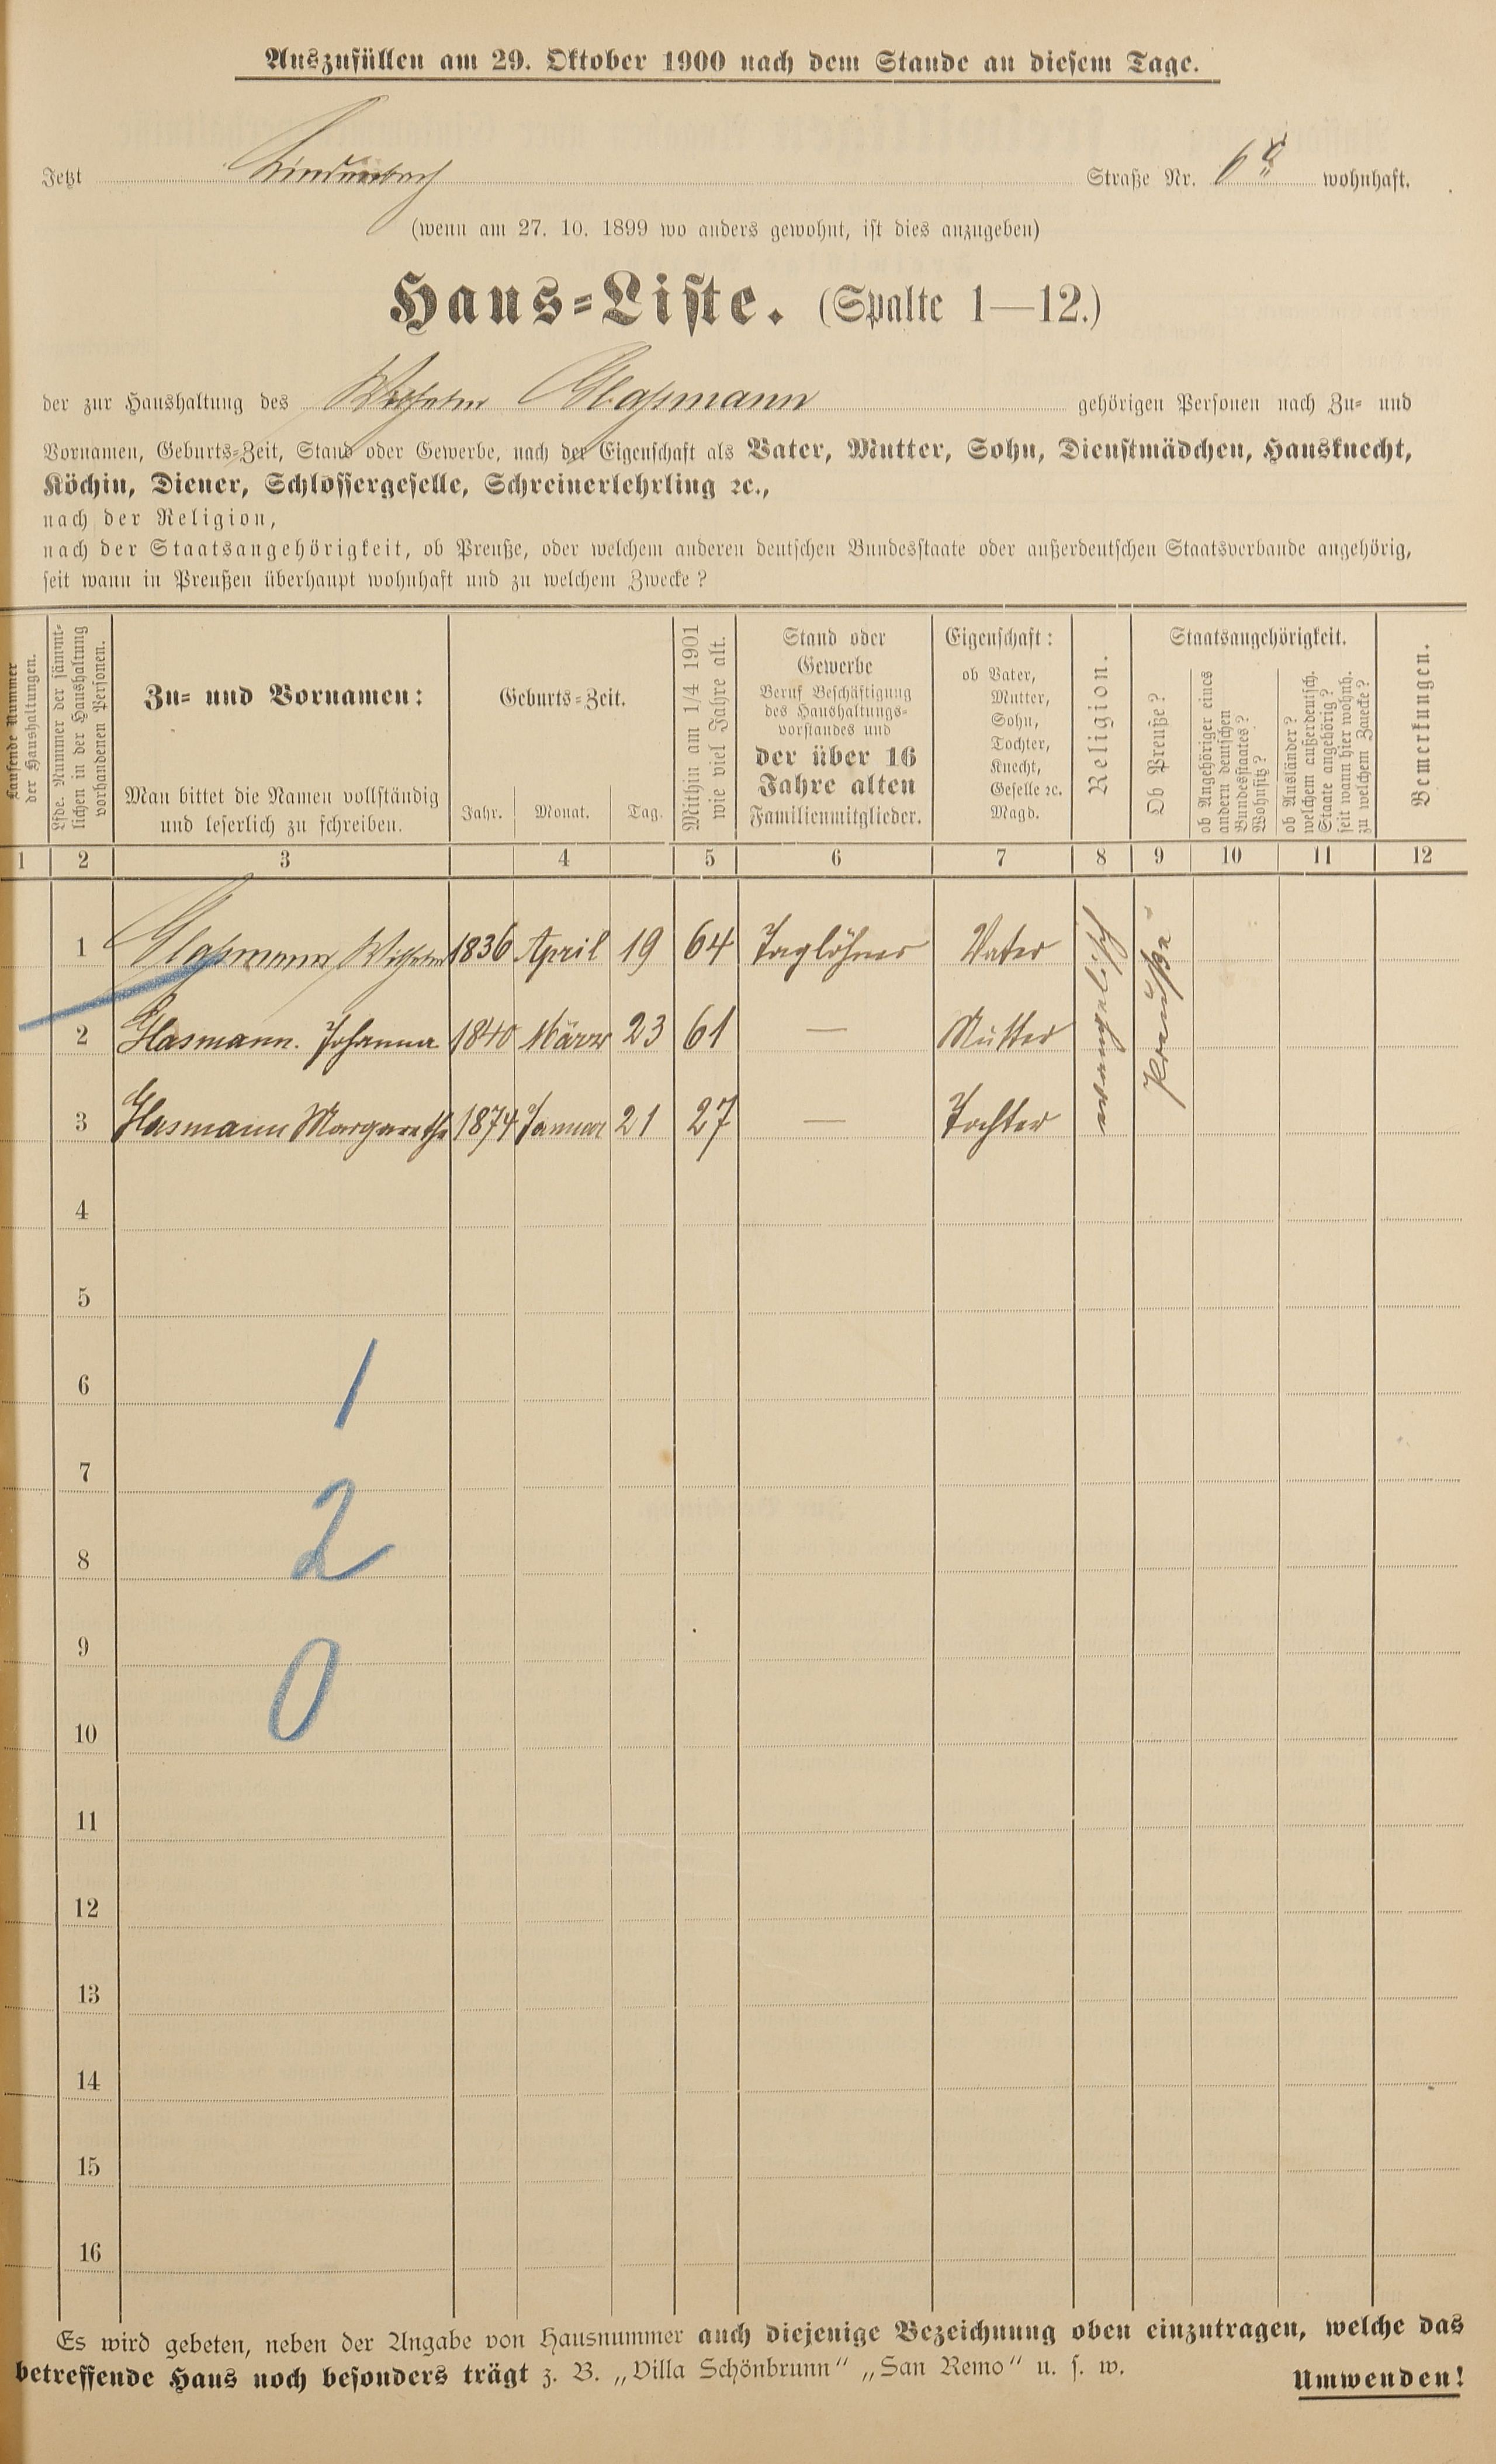 Auszufüllen am 29. Oktober 1900 nach dem Stande an diesem Tage.
Jetzt Lindenbach Straße Nr. 6a wohnhaft.
(wenn am 27. 10. 1899 wo anders gewohnt, ist dies anzugeben)
Haus-Liste. (Spalte 1—12.)
der zur Haushaltung des Wilhelm Glaßmann gehörigen Personen nach Zu- und
Vornamen, Geburts-Zeit, Stand oder Gewerbe, nach der Eigenschaft als Vater, Mutter, Sohn, Dienstmädchen, Hausknecht,
Köchin, Diener, Schlossergeselle, Schreinerlehrling ꝛc.,
nach der Religion,
nach der Staatsangehörigkeit, ob Preuße, oder welchem anderen deutschen Bundesstaate oder außerdeutschen Staatsverbande angehörig,
seit wann in Preußen überhaupt wohnhaft und zu welchem Zwecke?
Laufende Nummer
der Haushaltungen.
Lfde. Nummer der sämmt-
lichen in der Haushaltung
vorhandenen Personen.
Zu- und Vornamen:
Man bittet die Namen vollständig
und leserlich zu schreiben.
Geburts-Zeit.
Jahr. Monat. Tag.
Mithin am 1/4 1901
wie viel Jahre alt.
Stand oder
Gewerbe
Beruf Beschäftigung
des Haushaltungs-
vorstandes und
der über 16
Jahre alten
Familienmitglieder.
Eigenschaft:
ob Vater,
Mutter,
Sohn,
Tochter,
Knecht,
Geselle ꝛc.
Magd.
Religion.
Staatsangehörigkeit.
Ob Preuße?
ob Angehöriger eines
andern deutschen
Bundesstaates?
Wohnsitz?
ob Ausländer?
welchem außerdeutsch.
Staate angehörig?
seit wann hier wohnh.
zu welchem Zwecke?
Bemerkungen.
1 2 3 4 5 6 7 8 9 10 11 12
1 Glaßmann Wilhelm 1836 April 19 64 Taglöhner Vater
2 Glasmann. Johanna 1840 März 23 61 — Mutter
3 Glasmann Margarethe 1874 Januar 21 27 — Tochter
evangelisch
Preuße
4
5
6
1
7
8
2
9
10
0
11
12
13
14
15
16
Es wird gebeten, neben der Angabe von Hausnummer auch diejenige Bezeichnung oben einzutragen, welche das
betreffende Haus noch besonders trägt z. B. „Villa Schönbrunn“ „San Remo“ u. s. w.
Umwenden!